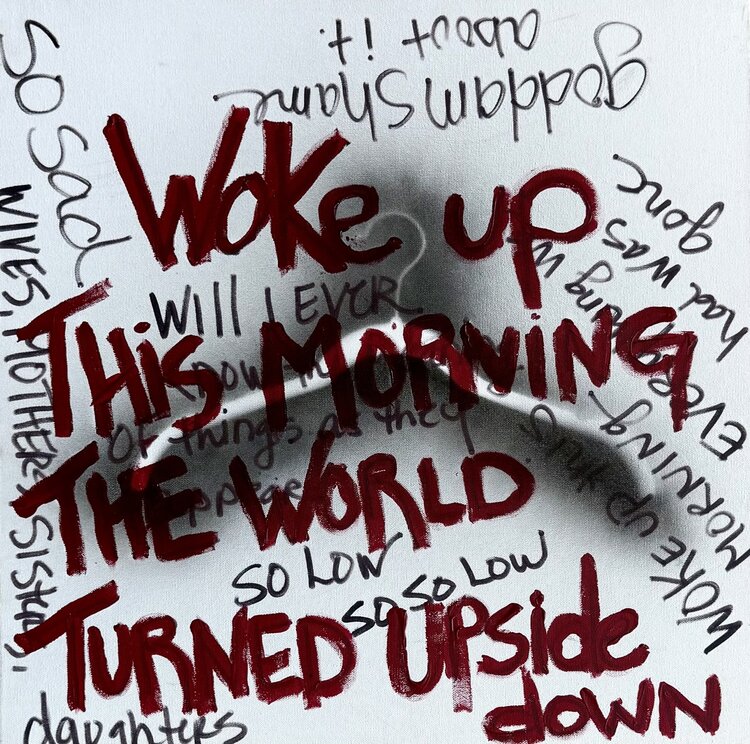 goddam shame
about it.
so sad
Woke up
This Morning
The World
Turned Upside
down
WILL I EVER
know
of things as they
so low
so so low
WIVES, MOTHERS, SISTERS,
daughters
WOKE up this
MORNING EVERything
had was
gone.